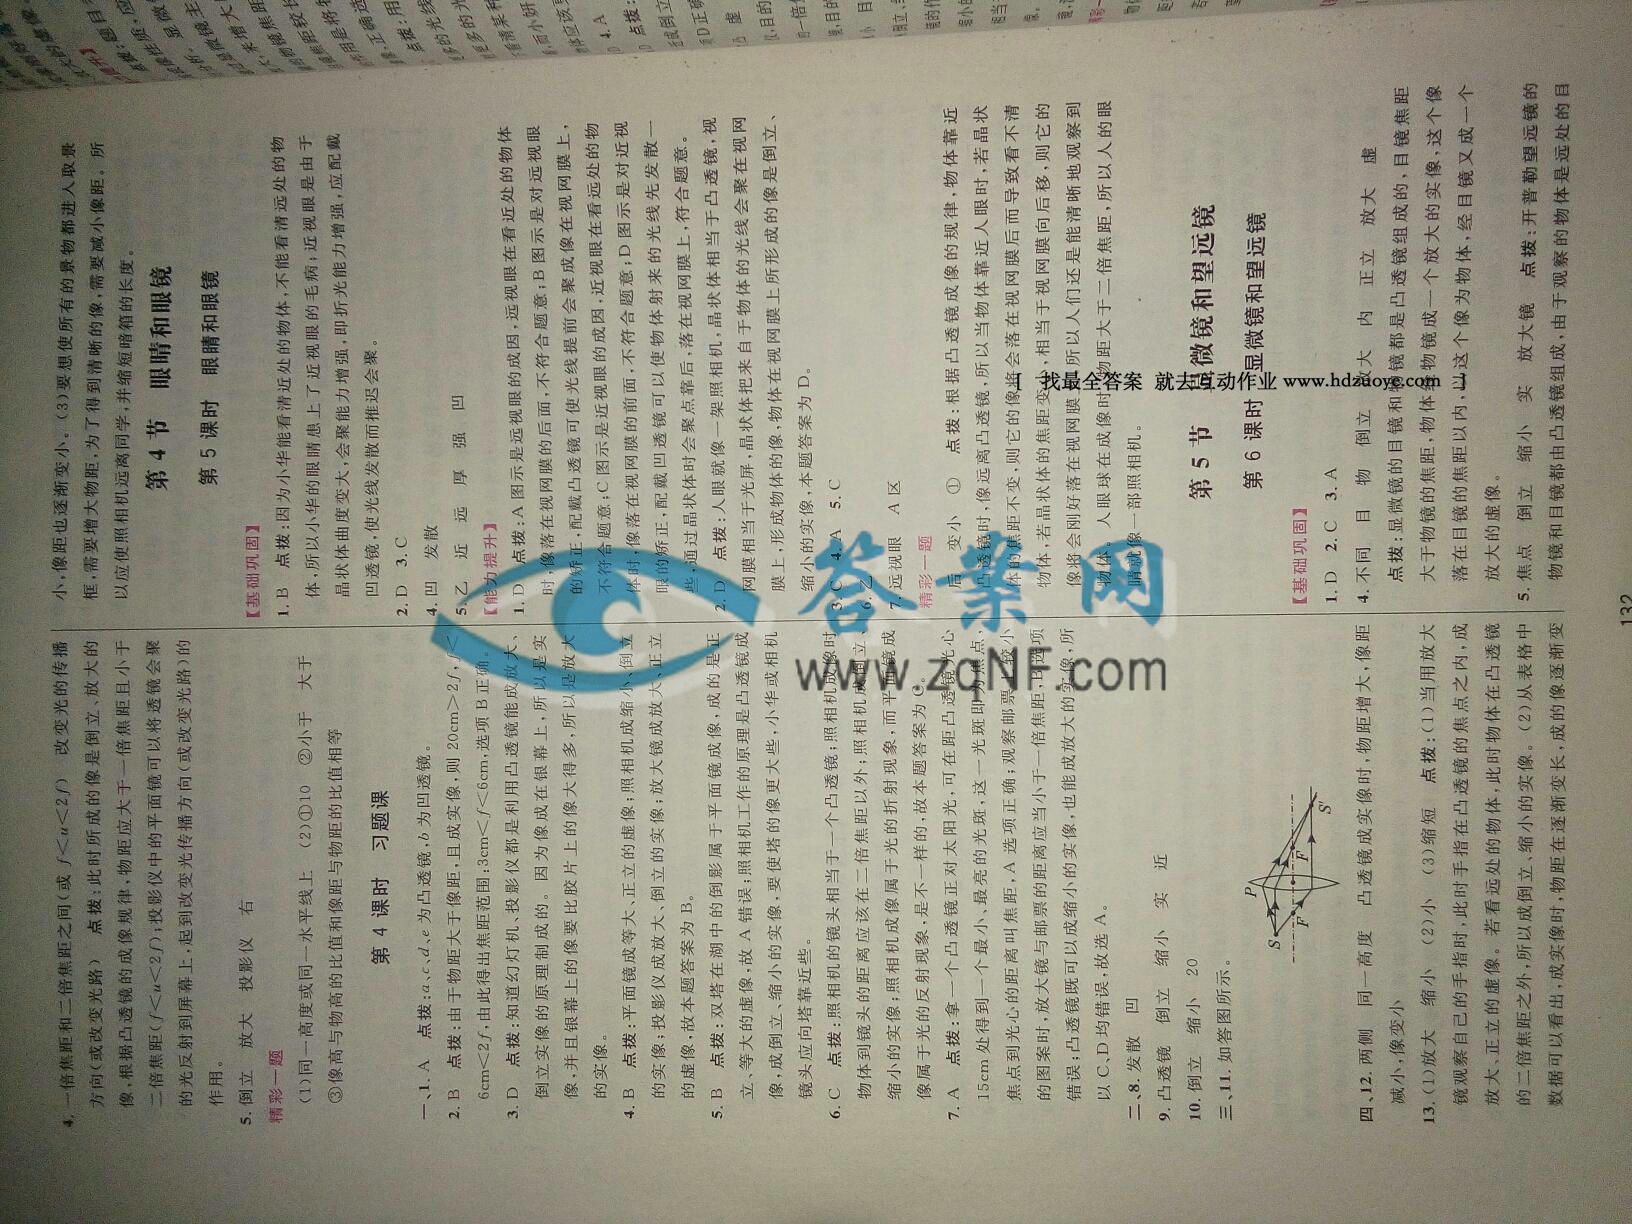 4. 一倍焦距和二倍焦距之间(或 f<u<2f) 改变光的传播
方向(或改变光路) 点拨:此时所成的像是倒立、放大的
像,根据凸透镜的成像规律,物距应大于一倍焦距且小于
二倍焦距(f<u<2f);投影仪中的平面镜可以将透镜会聚
的光反射到屏幕上,起到改变光传播方向(或改变光路)的
作用。
5. 倒立 放大 投影仪 右
精彩一题
(1)同一高度或同一水平线上 (2)①10 ②小于 大于
③像高与物高的比值和像距与物距的比值相等
第 4 课时 习题课
一、1. A 点拨:a、c、d、e 为凸透镜,b 为凹透镜。
2. B 点拨:由于物距大于像距,且成实像,则 20cm>2f,f<
6cm<2f,由此得出焦距范围:3cm<f<6cm,选项 B 正确。
3. D 点拨:知道幻灯机、投影仪都是利用凸透镜能成放大、
倒立实像的原理制成的。因为像成在银幕上,所以是实
像,并且银幕上的像要比胶片上的像大得多,所以是放大
的实像。
4. B 点拨:平面镜成等大、正立的虚像;照相机成缩小、倒立
的实像;投影仪成放大、倒立的实像;放大镜成放大、正立
的虚像,故本题答案为 B。
5. B 点拨:双塔在湖中的倒影属于平面镜成像,成的是正
立、等大的虚像,故 A 错误;照相机工作的原理是凸透镜成
像,成倒立、缩小的实像,要使塔的像更大些,小华或相机
镜头应向塔靠近些。
6. C 点拨:照相机的镜头相当于一个凸透镜;照相机成像时
物体到镜头的距离应该在二倍焦距以外;照相机成倒立、
缩小的实像;照相机成像属于光的折射现象,而平面镜成
像属于光的反射现象,是不一样的,故本题答案为 C。
7. A 点拨:拿一个凸透镜正对太阳光,可在距凸透镜光心
15cm 处得到一个最小、最亮的光斑,这一光斑即为焦点,
焦点到光心的距离叫焦距,A 选项正确;观察邮票上较小
的图案时,放大镜与邮票的距离应当小于一倍焦距,B 选项
错误;凸透镜既可以成缩小的实像,也能成放大的实像,所
以 C、D 均错误,故选 A。
二、8. 发散 凹
9. 凸透镜 倒立 缩小 实 近
10. 倒立 缩小 20
三、11. 如答图所示。
P
S F F S′
四、12. 两侧 同一高度 凸透镜成实像时,物距增大,像距
减小,像变小
13. (1)放大 缩小 (2)小 (3)缩短 点拨:(1)当用放大
镜观察自己的手指时,此时手指在凸透镜的焦点之内,成
放大、正立的虚像。若看远处的物体,此时物体在凸透镜
的二倍焦距之外,所以成倒立、缩小的实像。(2)从表格中
数据可以看出,成实像时,物距在逐渐变长,成的像逐渐变
小,像距也逐渐变小。(3)要想使所有的景物都进入取景
框,需要增大物距,为了得到清晰的像,需要减小像距。所
以应使照相机远离同学,并缩短暗箱的长度。
第 4 节 眼睛和眼镜
第 5 课时 眼睛和眼镜
【基础巩固】
1. B 点拨:因为小华能看清近处的物体,不能看清远处的物
体,所以小华的眼睛患上了近视眼的毛病;近视眼是由于
晶状体曲度变大,会聚能力增强,即折光能力增强,应配戴
凹透镜,使光线发散而推迟会聚。
2. D 3. C
4. 凹 发散
5. 乙 近 远 厚 强 凹
【能力提升】
1. D 点拨:A 图示是远视眼的成因,远视眼在看近处的物体
时,像落在视网膜的后面,不符合题意;B 图示是对远视眼
的矫正,配戴凸透镜可使光线提前会聚成像在视网膜上,
不符合题意;C 图示是近视眼的成因,近视眼在看远处的物
体时,像落在视网膜的前面,不符合题意;D 图示是对近视
眼的矫正,配戴凹透镜可以使物体射来的光线先发散一
些,通过晶状体时会聚点靠后,落在视网膜上,符合题意。
2. D 点拨:人眼就像一架照相机,晶状体相当于凸透镜,视
网膜相当于光屏,晶状体把来自于物体的光线会聚在视网
膜上,形成物体的像,物体在视网膜上所形成的像是倒立、
缩小的实像,本题答案为 D。
3. C 4. A 5. C
6. 乙
7. 远视眼 A 区
精彩一题
后 变小 ① 点拨:根据凸透镜成像的规律,物体靠近
凸透镜时,像远离凸透镜,所以当物体靠近人眼时,若晶状
体的焦距不变,则它的像将会落在视网膜后而导致看不清
物体;若晶状体的焦距变小,相当于视网膜向后移,则它的
像将会刚好落在视网膜上,所以人们还是能清晰地观察到
物体。人眼球在成像时,物距大于二倍焦距,所以人的眼
睛就像一部照相机。
第 5 节 显微镜和望远镜
第 6 课时 显微镜和望远镜
【基础巩固】
1. D 2. C 3. A
4. 不同 目 物 倒立 放大 内 正立 放大 虚
点拨:显微镜的目镜和物镜都是凸透镜组成的,目镜焦距
大于物镜的焦距,物体经物镜成一个放大的实像,这个像
落在目镜的焦距以内,以这个像为物体,经目镜又成一个
放大的虚像。
5. 焦点 倒立 缩小 实 放大镜 点拨:开普勒望远镜的
物镜和目镜都由凸透镜组成,由于观察的物体是远处的目
132
答案网
www.zqNF.com
找最全答案 就去互动作业 www.hdzuoye.com